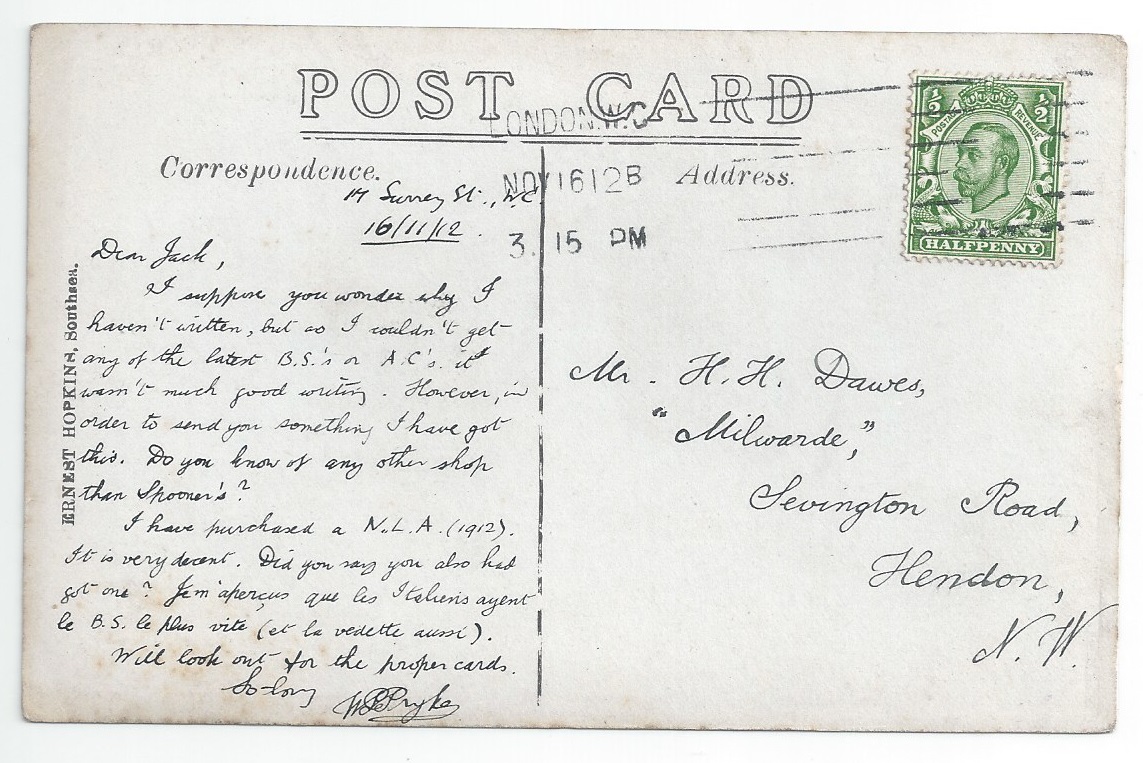 POST CARD
LONDON. W.C
NOV 16 12 B
3. 15 PM
Correspondence.
Address.
½ ½
POSTAGE REVENUE
HALFPENNY
ERNEST HOPKINS, Southsea.
17 Surrey St., W.C
16/11/12.
Dear Jack,
I suppose you wonder why I
haven't written, but as I couldn't get
any of the latest B.S.'s or A.C's. it
wasn't much good writing. However, in
order to send you something I have got
this. Do you know of any other shop
than Spooner's?
I have purchased a N.L.A. (1912).
It is very decent. Did you say you also had
got one? Je m'aperçus que les Italiens ayent
le B.S. le plus vite (et la vedette aussi).
Will look out for the proper cards.
So-long
Pryke
Mr. H. H. Dawes,
"Milwarde",
Sevington Road,
Hendon,
N. W.